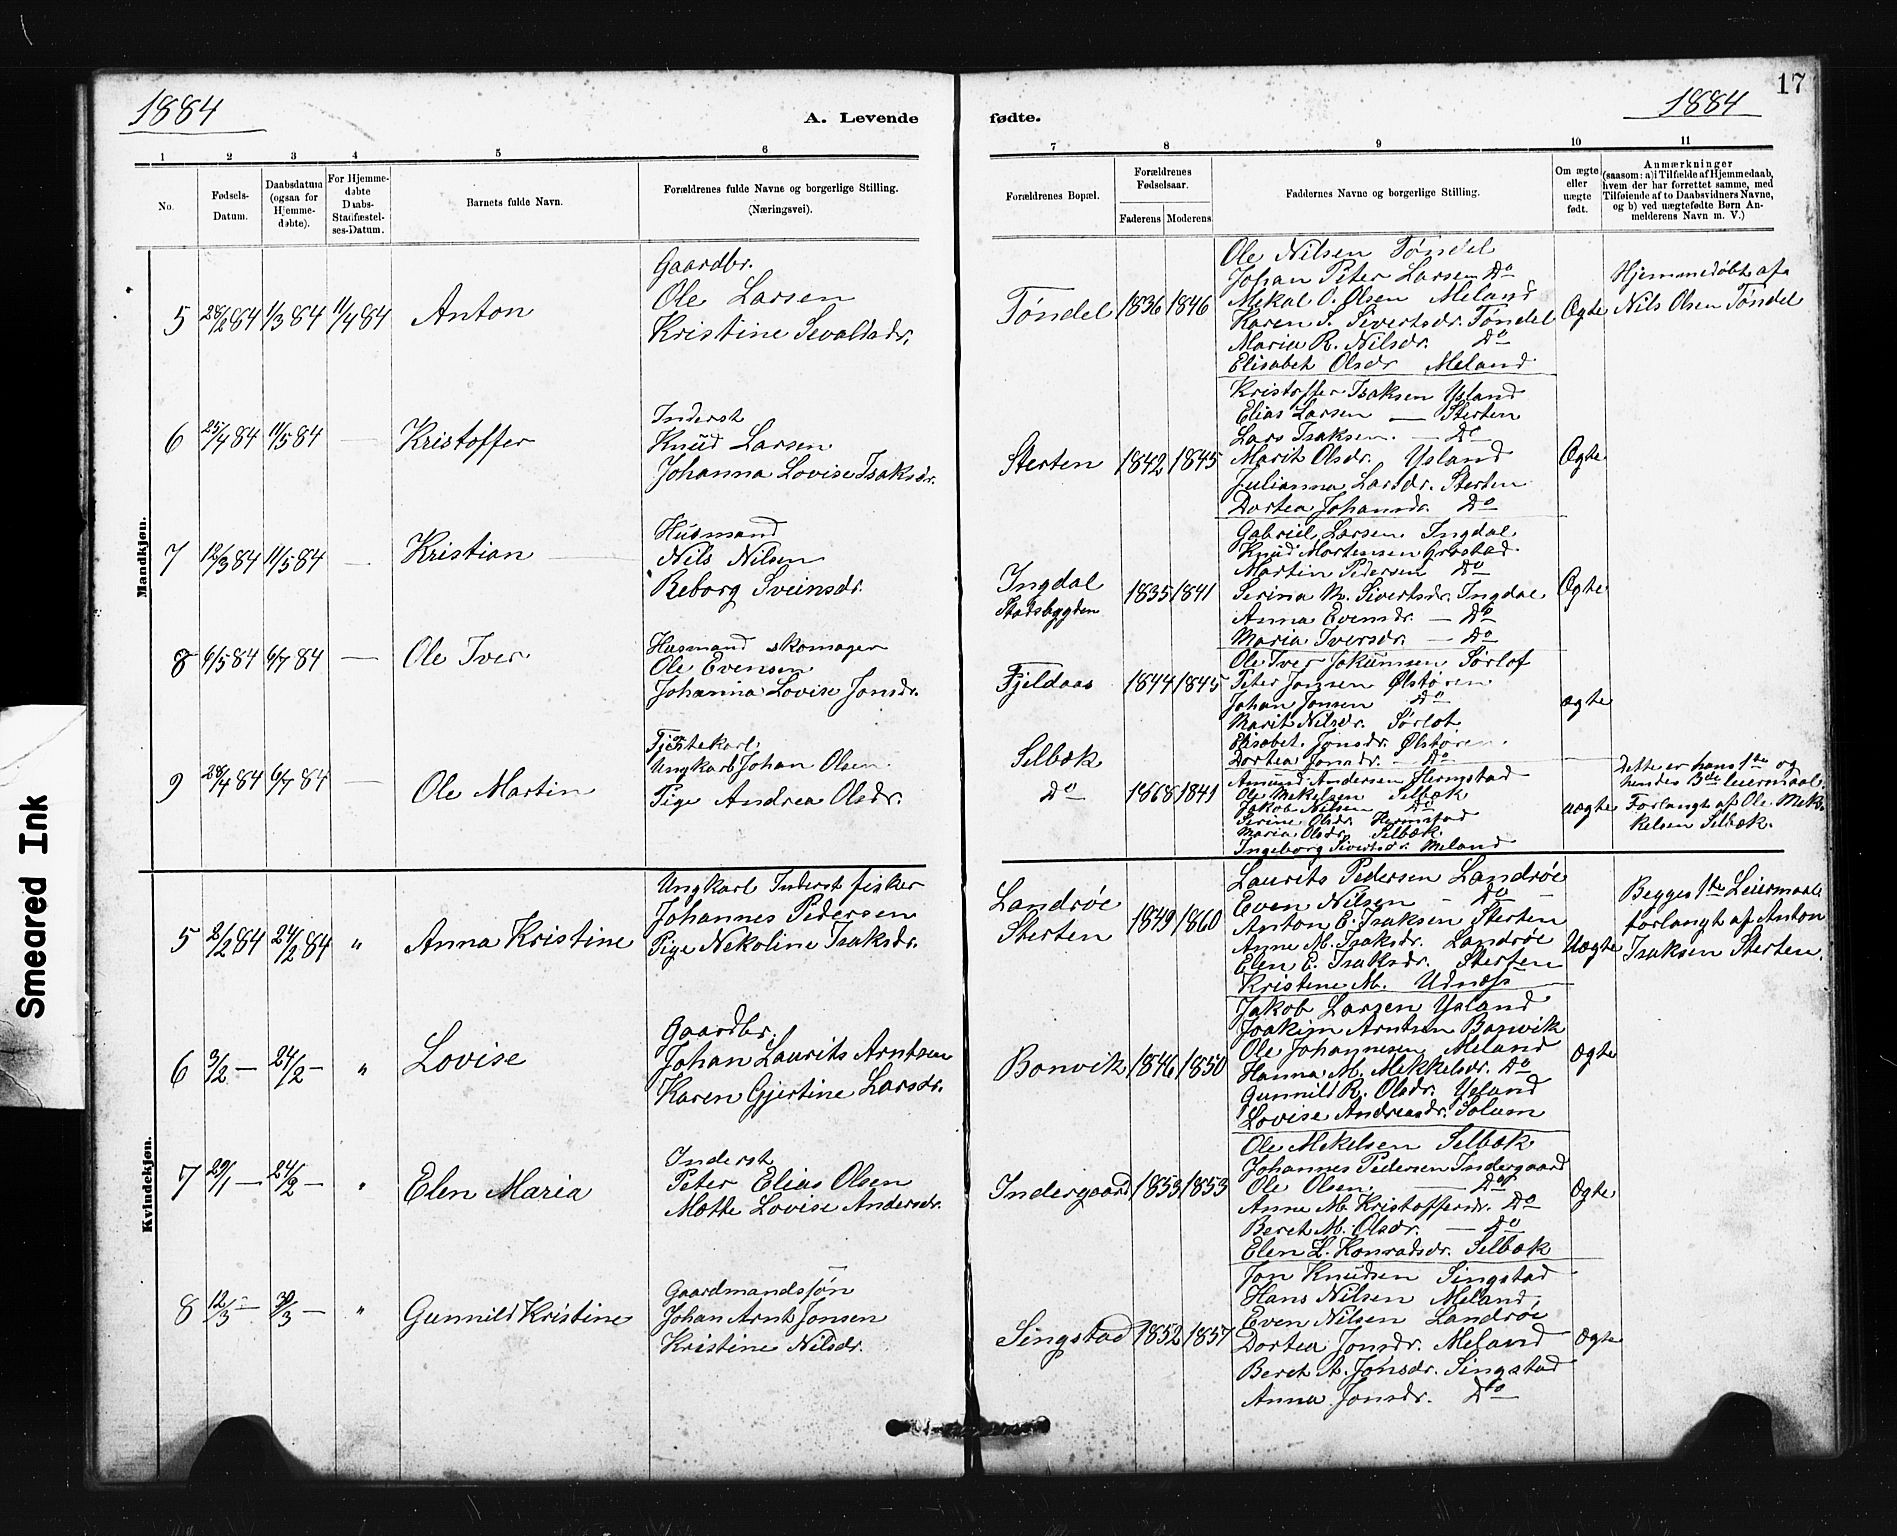 17
1884
A. Levende
fødte.
1884
1 2 3 4 5 6
7 8 9 10 11
No.
Fødsels-
Datum.
Daabsdatum
(ogsaa for
Hjemme-
døbte).
For Hjemme-
døbte
Daabs-
Stadfæstel-
ses-Datum.
Barnets fulde Navn.
Forældrenes fulde Navne og borgerlige Stilling.
(Næringsvei).
Forældrenes Bopæl.
Forældrenes
Fødselsaar.
Faderens Moderens
Faddernes Navne og borgerlige Stilling.
Om ægte
eller
uægte
født.
Anmærkninger
(saasom: a) i Tilfælde af Hjemmedaab,
hvem der har forrettet samme, med
Tilføiende af to Daabsvidners Navne,
og b) ved uægtefødte Børn An-
melderens Navn m. V.)
Mandkjøn.
5 28/2 84 1/3 84 11/4 84 Anton
Gaardbr.
Ole Larsen
Kristine Sevaldsdr.
Tøndel 1836 1846
Ole Nilsen Tøndel
Johan Peter Larsen Do
Mekal O. Olsen Meland
Karen S. Sivertsdr. Tøndel
Maria R. Nilsdr. Do
Elisabet Olsdr Meland
Ægte
Hjemmedøbt af
Nils Olsen Tøndel
6 25/4 84 11/5 84 — Kristoffer
Inderst
Knud Larsen
Johanna Lovise Isaksdr.
Sterten 1842 1845
Kristoffer Isaksen Ysland
Elias Larsen — Sterten
Lars Isaksen — Do
Marit Olsdr. Ysland
Julianna Larsdr. Sterten
Dortea Johansdr. Do
Ægte
7 12/3 84 11/5 84 — Kristian
Husmand
Nils Nilsen
Beborg Sveinsdr.
Ingdal
Stadsbygden
1835 1841
Gabriel Larsen Ingdal
Knud Mortensen Grøstad
Martin Pedersen Do
Serina M. Sivertsdr. Ingdal
Anna Evensdr. — Do
Maria Iversdr. — Do
Ægte
8 6/5 84 6/7 84 — Ole Iver
Husmand skomager
Ole Evensen
Johanna Lovise Jonsdr.
Fjeldaas 1844 1845
Ole Iver Jokumsen Sørlot
Peter Jonsen Ølstøren
Johan Jonsen Do
Marit Nilsdr. Sørlot
Elisabet Jonsdr. Ølstøren
Dortea Jonsdr. — Do
ægte
9 28/4 84 6/7 84 — Ole Martin
Tjenstekarl.
Ungkarl Johan Olsen
Pige Andrea Olsdr.
Selbæk
Do 1868 1841
Amund Andersen Hermstad
Ole Mekelsen Selbæk
Jakob Nilsen Do
Serine Olsdr. Hermstad
Maria Olsdr. Selbæk
Ingeborg Sivertsdr. Meland
uægte
Dette er hans 1ste og
hendes 3de leiermaal.
Forlangt af Ole Mek-
kelsen Selbæk.
Kvindekjøn.
5 2/2 84 24/2 84 " Anna Kristine
Ungkarl Inderst fisker
Johannes Pedersen
Pige Nekoline Isaksdr.
Landrøe
Sterten
1849 1860
Laurits Pedersen Landrøe
Even Nilsen — Do —
Anton E. Isaksen Sterten
Anne M. Isaksdr. Landrøe
Elen E. Isaksdr. Sterten
Kristine M. Udnæss
Uægte
Begges 1ste Leiermaal
forlangt af Anton
Isaksen Sterten.
6 3/2 — 24/2 — " Lovise
Gaardbr.
Johan Laurits Arntsen
Karen Gjertine Larsdr.
Bonvik 1846 1850
Jakob Larsen Ysland
Joakim Arntsen Bonvik
Ole Johannesen Meland
Hanna M. Mekkelsdr. Do
Gunnild R. Olsdr. Ysland
Lovise Andreasdr. Solum
Ægte
7 29/1 — 24/2 — " Elen Maria
Inderst
Peter Elias Olsen
Mette Lovise Andersdr.
Indergaard 1853 1853
Ole Mekelsen Selbæk
Johannes Pedersen Indergaard
Ole Olsen — Do
Anne M. Kristoffersdr. Do
Beret M. Olsdr. — Do
Elen L. Konradsdr. Selbæk
Ægte
8 12/3 — 30/3 — " Gunnild Kristine
Gaardmandssøn
Johan Arnt Jonsen
Kristine Nilsdr.
Singstad 1852 1857
Jon Knudsen Singstad
Hans Nilsen Meland
Even Nilsen Landrøe
Dortea Jonsdr. Meland
Beret A. Jonsdr. Singstad
Anna Jonsdr. Do
Ægte
Smeared Ink